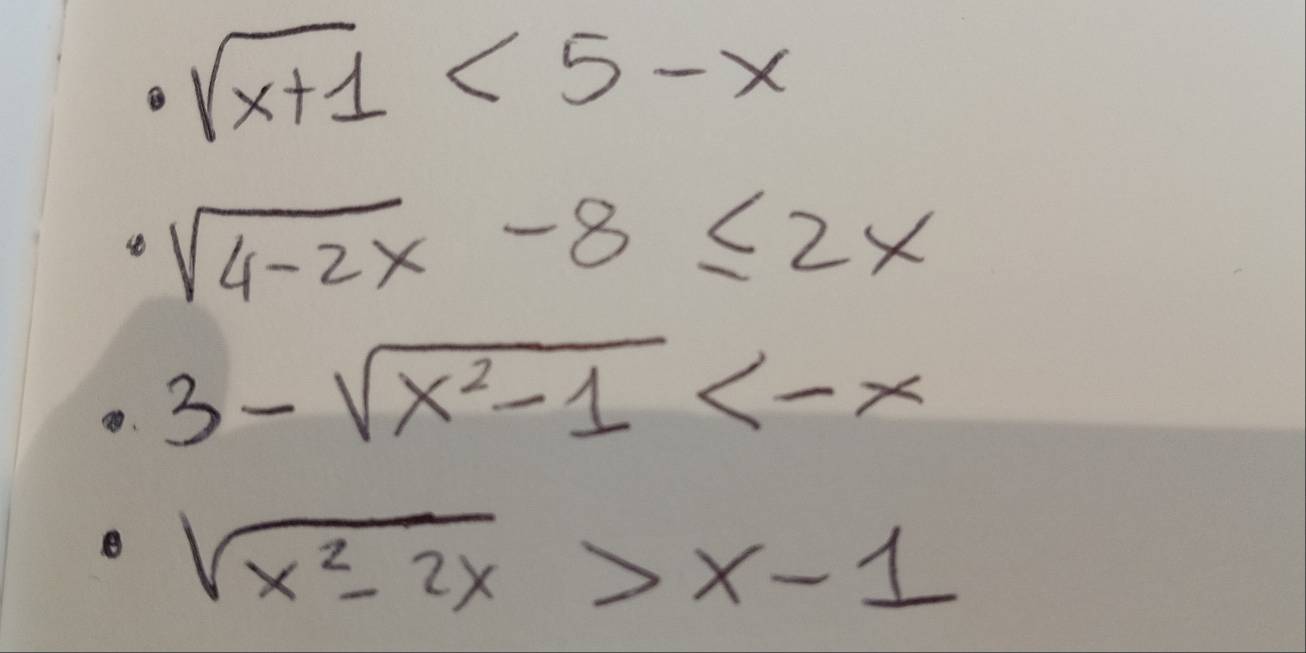 • √(x+1) < 5 - x
• √(4-2x) - 8 ≤ 2x
• 3 - √(x² - 1) < - x
• √(x² - 2x) > x - 1